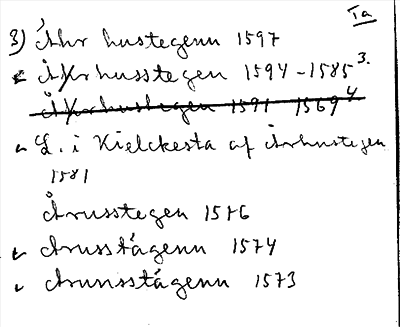 Ia
3) Åhr hustegenn 1597
Åhrhusstegen 1594-1585 3.
Åhrhustegen 1591 1569 4
L. i Kielckesta af Århustegen
1581
Årusstegen 1576
Arusstågenn 1574
Arunsstågenn 1573